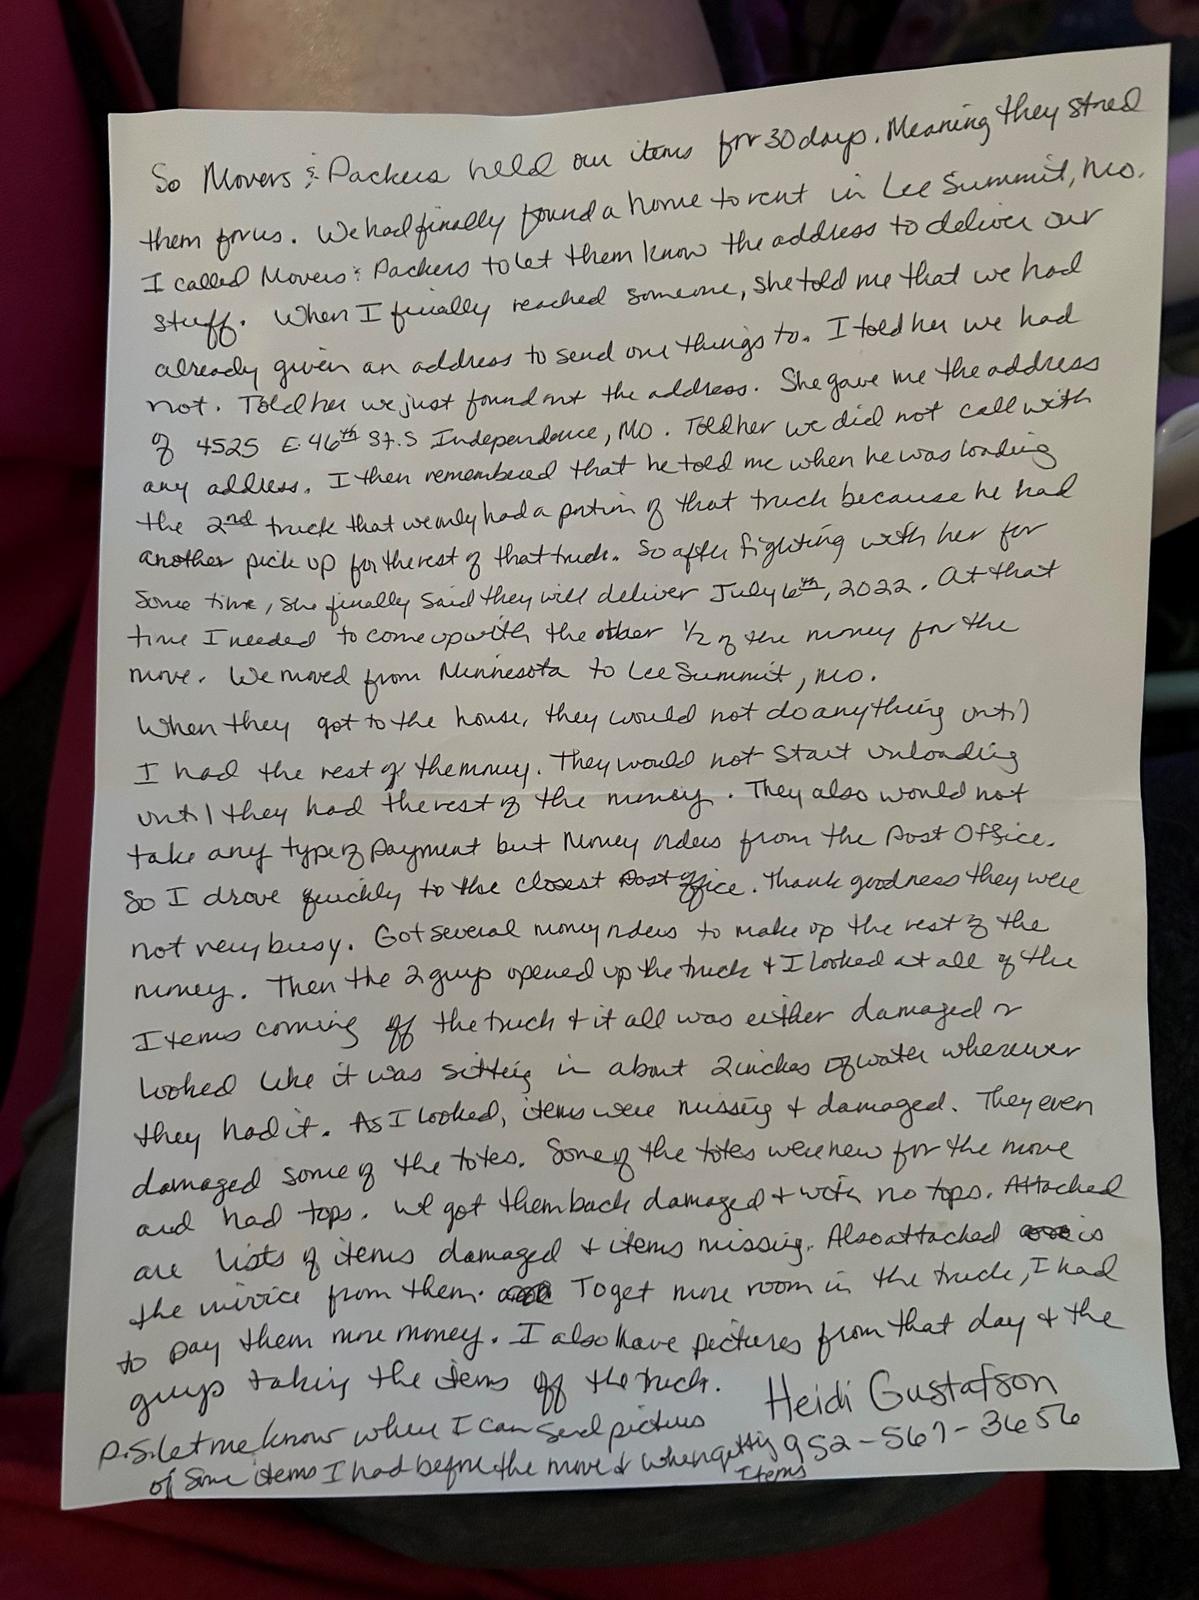 So Movers & Packers held our items for 30 days. Meaning they stored
them for us. We had finally found a home to rent in Lee Summit, MO.
I called Movers & Packers to let them know the address to deliver our
stuff. When I finally reached someone, she told me that we had
already given an address to send our things to. I told her we had
not. Told her we just found out the address. She gave me the address
of 4525 E. 46th St. S Independence, MO. Told her we did not call with
any address. I then remembered that he told me when he was loading
the 2nd truck that we only had a portion of that truck because he had
another pick up for the rest of that truck. So after fighting with her for
some time, she finally said they will deliver July 6th, 2022. At that
time I needed to come up with the other 1/2 of the money for the
move. We moved from Minnesota to Lee Summit, MO.
When they got to the house, they would not do anything until
I had the rest of the money. They would not start unloading
until they had the rest of the money. They also would not
take any type of payment but Money orders from the Post Office.
So I drove quickly to the closest Post office. Thank goodness they were
not very busy. Got several money orders to make up the rest of the
money. Then the 2 guys opened up the truck & I looked at all of the
Items coming off the truck & it all was either damaged or
looked like it was sitting in about 2 inches of water wherever
they had it. As I looked, items were missing & damaged. They even
damaged some of the totes. Some of the totes were new for the move
and had tops. We got them back damaged & with no tops. Attached
are lists of items damaged & items missing. Also attached is
the invoice from them. To get more room in the truck, I had
to pay them more money. I also have pictures from that day & the
guys taking the items off the truck. Heidi Gustafson
P.S. Let me know when I can send pictures 952-567-3656
of some items I had before the move & when getting
Items